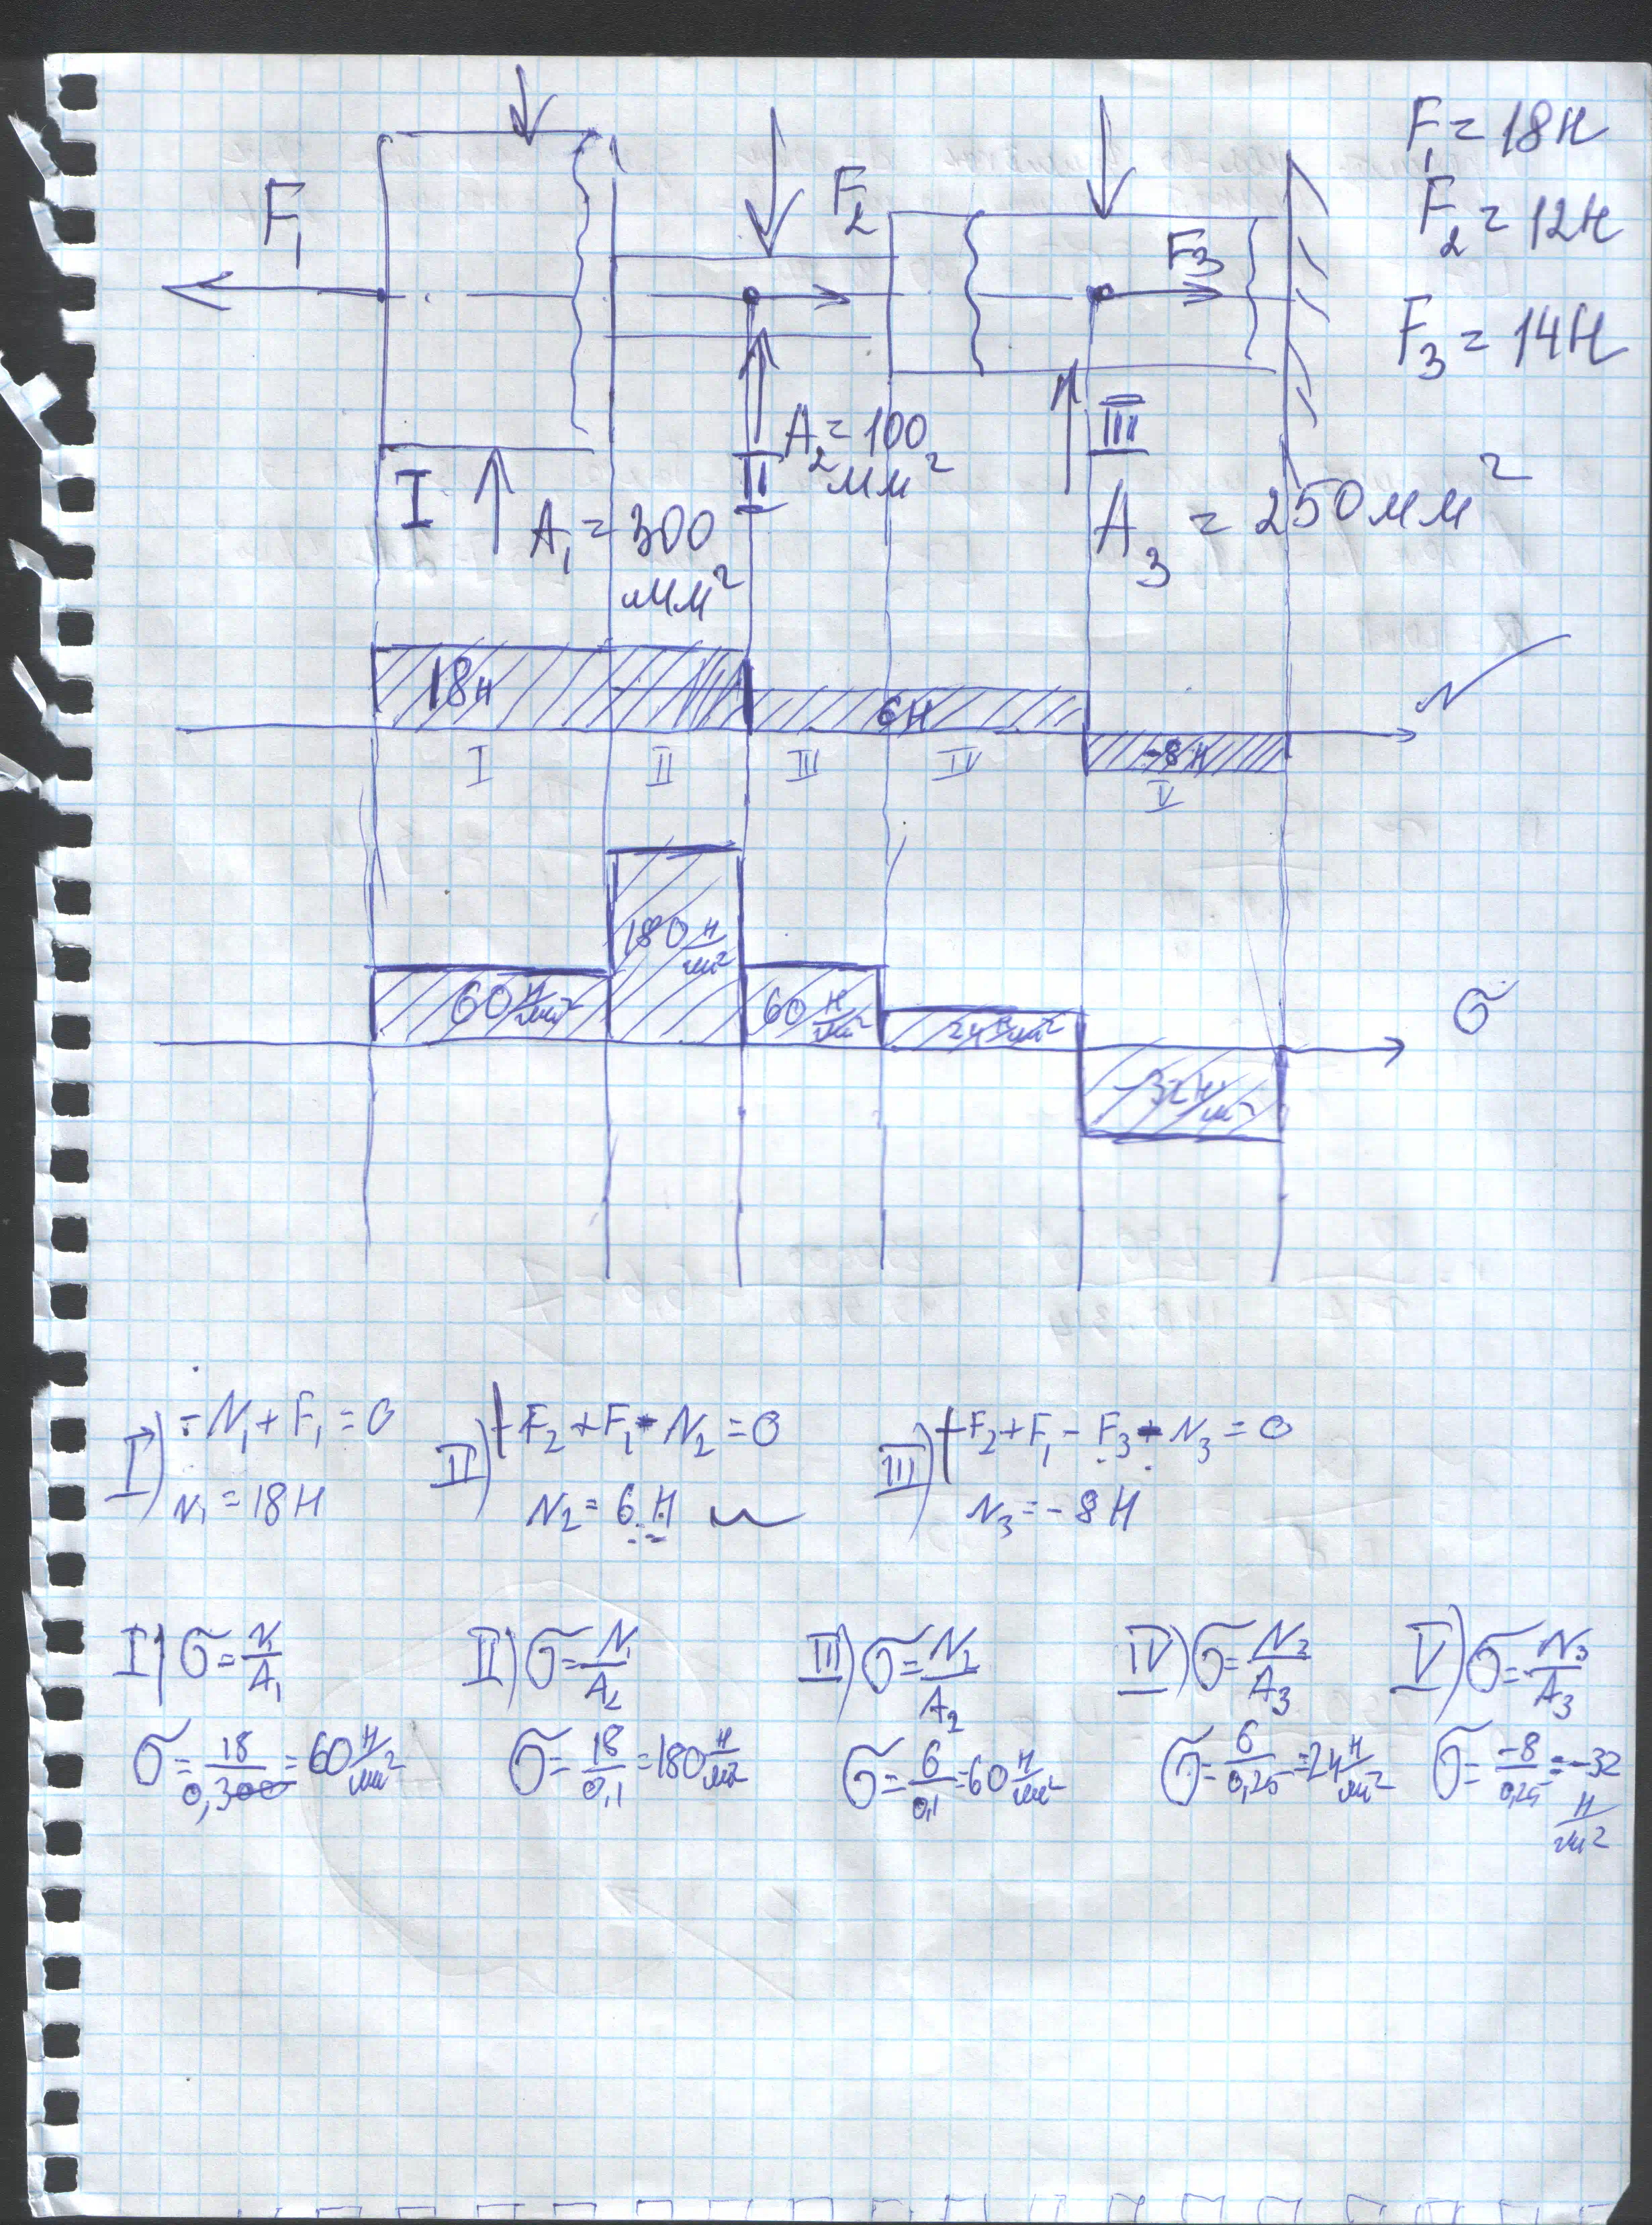 F₁ = 18Н
F₂ = 12Н
F₃ = 14Н
F₁
F₂
F₃
I
II
III
A₁ = 300 мм²
A₂ = 100 мм²
A₃ = 250 мм²
N
18н
6Н
-8Н
I
II
III
IV
V
σ
60 Н/мм²
180 Н/мм²
60 Н/мм²
-32 Н/мм²
I) -N₁ + F₁ = 0
N₁ = 18Н
II) -F₂ + F₁ - N₂ = 0
N₂ = 6 Н
III) -F₂ + F₁ - F₃ - N₃ = 0
N₃ = -8Н
I) σ = N₁/A₁
σ = 18/0,300 = 60 Н/мм²
II) σ = N₁/A₂
σ = 18/0,1 = 180 Н/мм²
III) σ = N₂/A₂
σ = 6/0,1 = 60 Н/мм²
IV) σ = N₂/A₃
σ = 6/0,25 = 24 Н/мм²
V) σ = N₃/A₃
σ = -8/0,25 = -32 Н/мм²